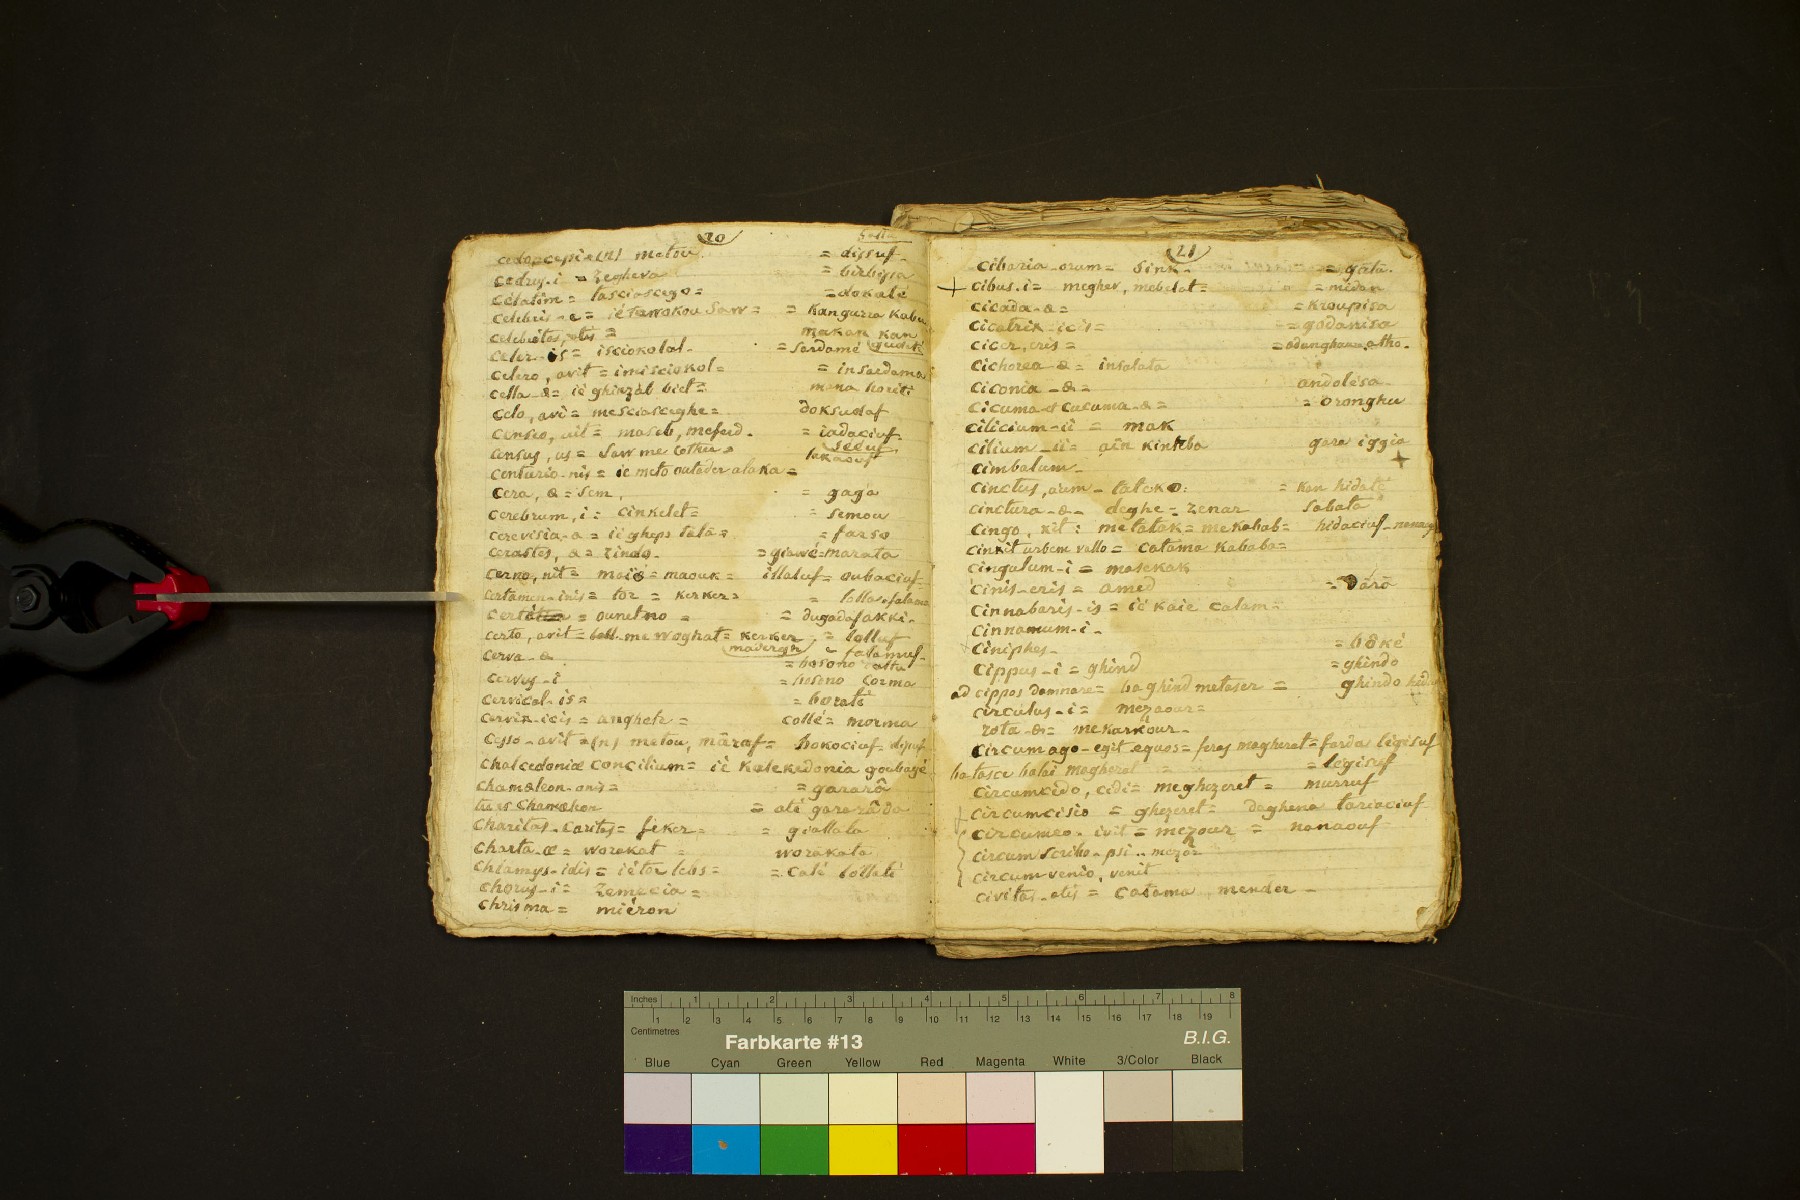 20
cedo, cepi = (n) metou = dissuf
cedrus-i = zeghera = birbissa
celatim = tasciascego = = dokate
celebris-e = ié tawokou Saw = = kangurra kabu
celebitas, atis = makan kan
celer-is = isciokolal = sardamé gudité
celero, avit = imisciokol = = insardama
cella-æ = ié ghinzàb biet = mana horiti
celo, avi = mesciasceghe = doksudaf
censeo, uit = maseb, mefered = iadaciuf
census, us = saw me cother = seeuf
lakaouf
centurio-nis = ie meto outader alaka =
cera, æ = sem, = gaga
cerebrum, i = cinkelet = = semou
cerevisia-a = ié gheps tala = = farso
cerastes, æ = zindo = giawé = marata
cerno, nit = maiè = maouk = illaluf = oubaciuf
certamen-inis = tor = kerker = = lolla = falama
certo = ounetno = = dugadafakki
certo, avit = me woghat = kerker = lolluf
madergh = falamuf
cerva-æ = bosono
cervus-i = bosono corma
cervical-is = = borati
cervix-icis = anghete = collé = morma
cesso-avit = (n) metou, màraf = bokociuf = disuf
chalcedoniæ concilium = ié kalekedonia goubayé
chamæleon-onis = = gararâ
tu es chamæleon = até gararâda
charitas-caritas = feker = = giallala
charta-æ = worakat = worakata
chlamys-idis = ié tor lebs = = calé lollaté
chorus-i = zemecia =
chrisma = miéron
21
cibaria-orum = sink = gata
+ cibus-i = megheb, mebelat = = midan
cicada-æ = = kroupisa
cicatrix-icis = = godanisa
cicer, eris = = adunghure atho
cichorea-æ = insalata
ciconia-æ = andolésa
cicuma et cucuma-æ = = orongku
cilicium-ii = mak
cilium-ii = ain kinteba gara iggia
cimbalum-
cinctus, a um = tateko: = kan hidaté
cinctura-æ = deghe = zenar sabata
cingo, xit: metatak = mekahab = hidaciuf-nanauf
cinxit urbem vallo = catama kababa =
cingulum-i = masekak
cinis-eris = amed = Dàrà
cinnabaris-is = ié kaie calam =
cinnamum-i-
ciniphes- = bôké
cippus-i = ghind = ghindo
ad cippos damnare = ba ghind metaser = ghindo
circulus-i = mezaour =
rota-æ = mekarkour-
circumago-egit equos = feras magherat = farda légisuf
ba tasce balai magherat = = légisuf
circumcido, cidi = meghezeret = murruf
circumcisio = ghezeret = daghena tariaciuf
circumeo-ivit = mezour = nanaouf
circumscribo-psi-mezor
circumvenio, venit
civitas-atis = catama mender-
Inches 1 2 3 4 5 6 7 8
Centimetres 1 2 3 4 5 6 7 8 9 10 11 12 13 14 15 16 17 18 19
Farbkarte #13 B.I.G.
Blue Cyan Green Yellow Red Magenta White 3/Color Black